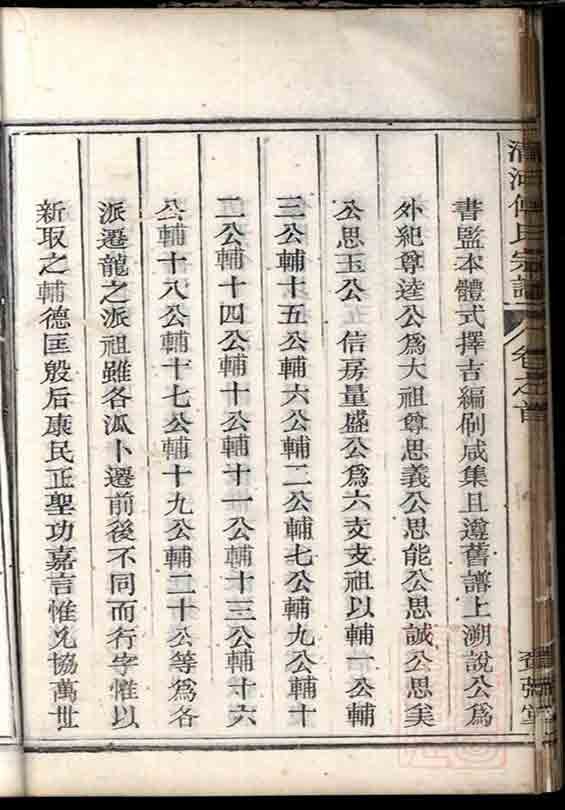 清河傅氏宗譜 卷之首
書監本體式擇吉編刷咸集且遵舊譜上溯說公爲
外紀尊逵公爲大祖尊思義公思能公思誠公思矣
公思玉公 信房量盛公爲六支支祖以輔一公輔
三公輔十五公輔六公輔二公輔七公輔九公輔十
二公輔十四公輔十公輔十一公輔十三公輔十六
公輔十八公輔十七公輔十九公輔二十公等爲各
派遷龍之派祖雖各瓜卜遷前後不同而行字惟以
新取之輔德匡殷后康民正聖功嘉言惟允協萬世